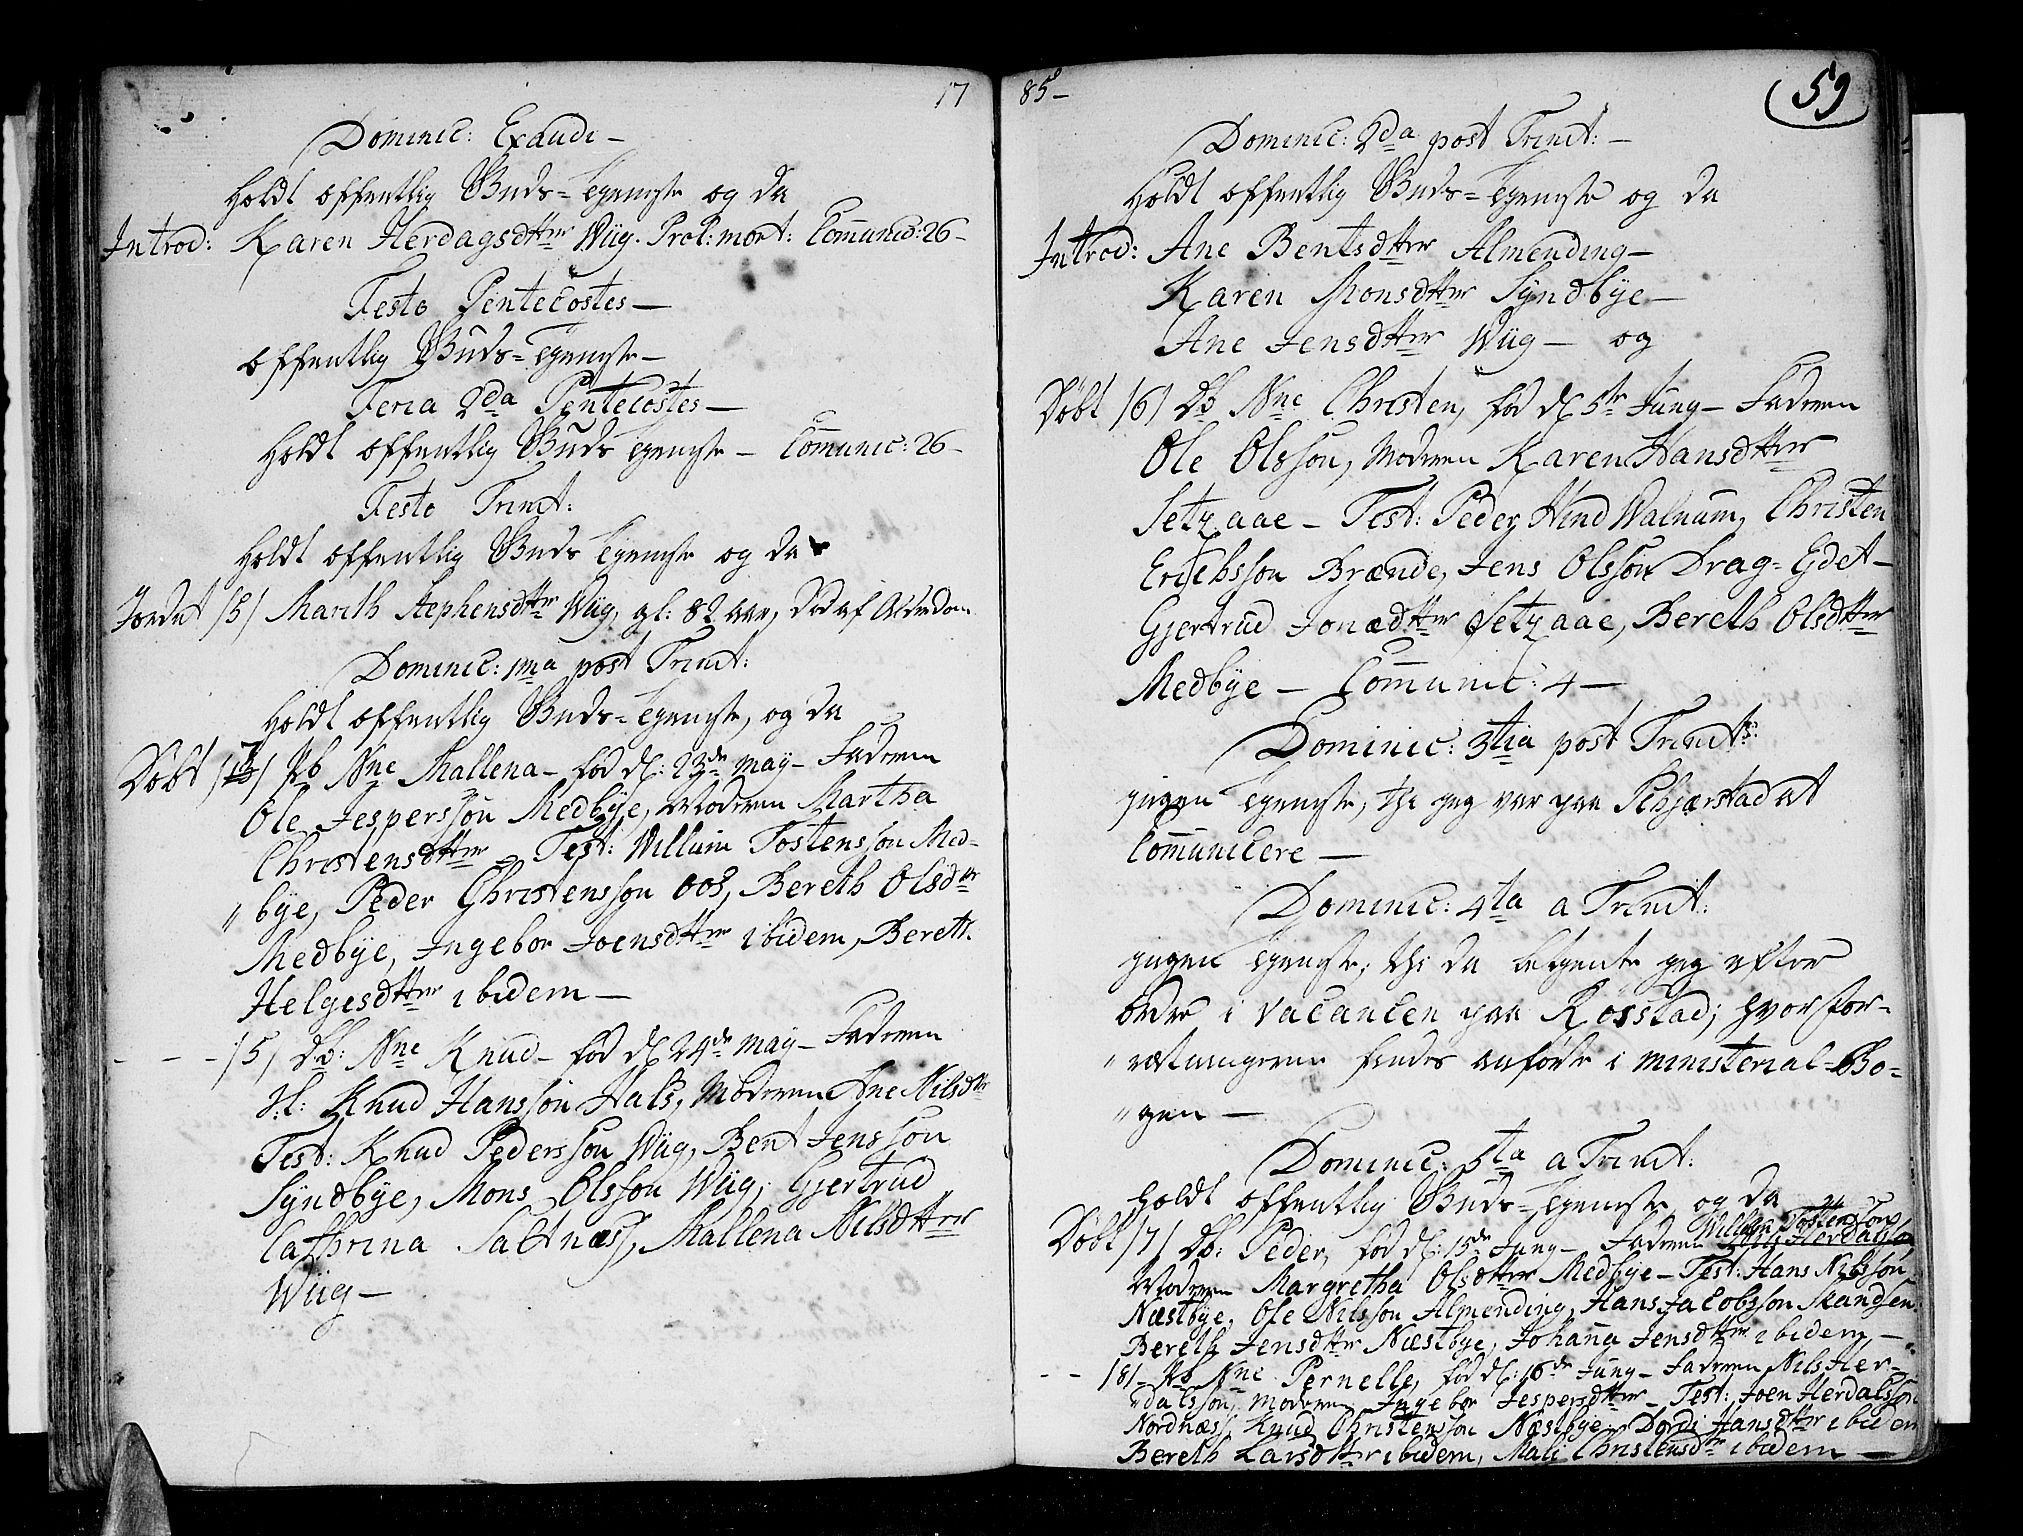 17
Dominic: Exaudi –
Holdt offentlig Guds-Tjeneste og da
Introd: Karen Herdagsdtter Wiig. Prol: mort: Communic: 26 –
Festo Pentecostes –
offentlig Guds-Tjeneste –
Feria 2da Pentecostes –
Holdt offentlig Guds Tjeneste – Communic: 26 –
Festo Trinit:
Holdt offentlig Guds Tjeneste og da
Jordet /5/ Marith Stephensdtter Wiig, gl: 82 aar, død af Alderdom
Dominic: 1ma post Trinit:
Holdt offentlig Guds-Tjeneste, og da
Døbt / / Pb Nne Mallena – fød d: 23de May – Faderen
Ole Jespersson Medbye, Moderen Martha
Christensdtter – Test: Willum Tostensson Med-
" bye, Peder Christensson Oos, Bereth Olsdtr
Medbye, Ingebor Joensdtter ibidem, Bereth
Helgesdtter ibidem –
- - - /5/ Db: Nne Knud – fød d: 24de May – Faderen
Sl: Knud Hansson Hals, Moderen Ane Nilsdtr
Test: Knud Pedersson Wiig, Bent Jensson
Syndbye, Mons Olsson Wiig, Gjertrud
Cathrina Saltnæss, Mallena Nilsdtter
Wiig –
85 –
59
Dominic: 2da post Trinit: –
Holdt offentlig Guds-Tjeneste og da
Introd: Ane Bentsdtter Almending –
Karen Monsdtter Syndbye –
Ane Jensdtter Wiig – og
Døbt /6/ Db Nne Christen, fød d: 5te Juny – Faderen
Ole Olsson, Moderen Karen Hansdtter
Setzaae – Test: Peder Hind Walnum, Christen
Erichsson Brænde, Jens Olsson Drag-Eydet –
Gjertrud Jonædtter Setzaae, Bereth Olsdtter
Medbye – Communic: 4 –
Dominic: 3tia post Trinit:
ingen Tjeneste, thi jeg var paa Schjærstad at
Communicere –
Dominic: 4ta a Trinit:
ingen Tjeneste, thi da betjente jeg efter
ordre i Vacancen paa Rösstad; hvor for-
" retningerne findes anførte i Ministerial-Bo-
" gen –
Dominic: 5ta a Trinit:
Holdt offentlig Guds-Tjeneste, og da
Willum Tostensson
Døbt /7/ Db: Peder, fød d: 15de Juny – Faderen Nils Herdalsson
Moderen Margretha Olsdtter Medbye – Test: Hans Nilsson
Næstbye, Ole Nilsson Almending, Hans Jacobsson Skandsen
Bereth Jensdtter Næstbye, Johanna Jensdtter ibidem –
- - /8/ – Pb Nne Pernelle, fød d: 16de Juny – Faderen Nils Her-
" dalsson, Moderen Ingebor Jespersdtter – Test: Joen Herdalsson
Nordnæss, Knud Christensson Næstbye, Dordi Hansdtter ibidem
Bereth Larsdtter ibidem, Mali Christensdtr ibidem –